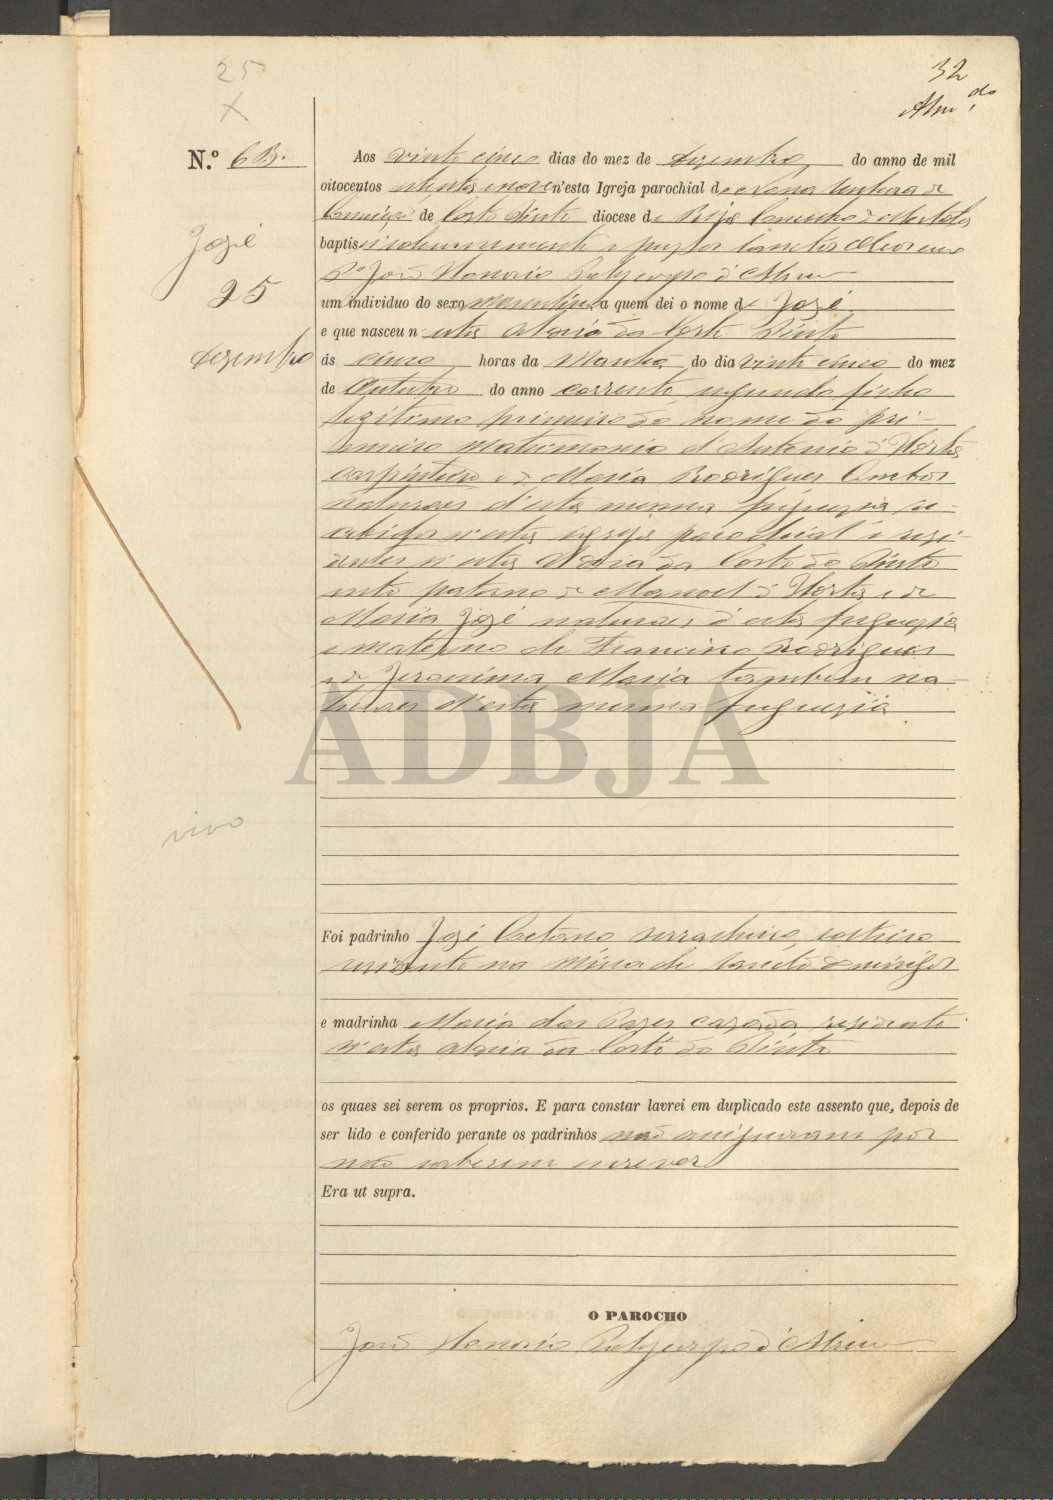 25
X
32
Abreu
N.º 63.
José
25
Dezembro
vivo
Aos vinte cinco dias do mez de Dezembro do anno de mil
oitocentos oitenta e nove n'esta Igreja parochial de Nossa Senhora da
Conceição de Corte Pinto diocese de Beja Concelho de Mertola
baptisei solemnemente e puz os Sanctos Oleos eu o
P.e João Honorio Polycarpo d'Abreu
um individuo do sexo Masculino a quem dei o nome de José
e que nasceu n'esta Aldeia da Corte Pinto
ás cinco horas da Manhã do dia vinte cinco do mez
de Outubro do anno corrente, segundo filho
legitimo primeiro do nome do pri-
meiro matrimonio d'Antonio d'Horta
carpinteiro e de Maria Rodrigues Ambos
naturaes d'esta mesma freguezia re-
cebidos n'esta igreja parochial e resi-
dentes n'esta Aldeia da Corte do Pinto
neto paterno de Manoel d'Horta e de
Maria José naturaes d'esta freguezia
e materno de Francisco Rodrigues
e de Jeronima Maria tambem na-
turaes d'esta mesma freguezia
ADBJA
Foi padrinho José Caetano serralheiro, solteiro
residente na Mina de São Domingos
e madrinha Maria das casada residente
n'esta aldeia da Corte do Pinto
os quaes sei serem os proprios. E para constar lavrei em duplicado este assento que, depois de
ser lido e conferido perante os padrinhos não assignaram por
não saberem escrever
Era ut supra.
O PAROCHO
João Honorio Polycarpo d'Abreu